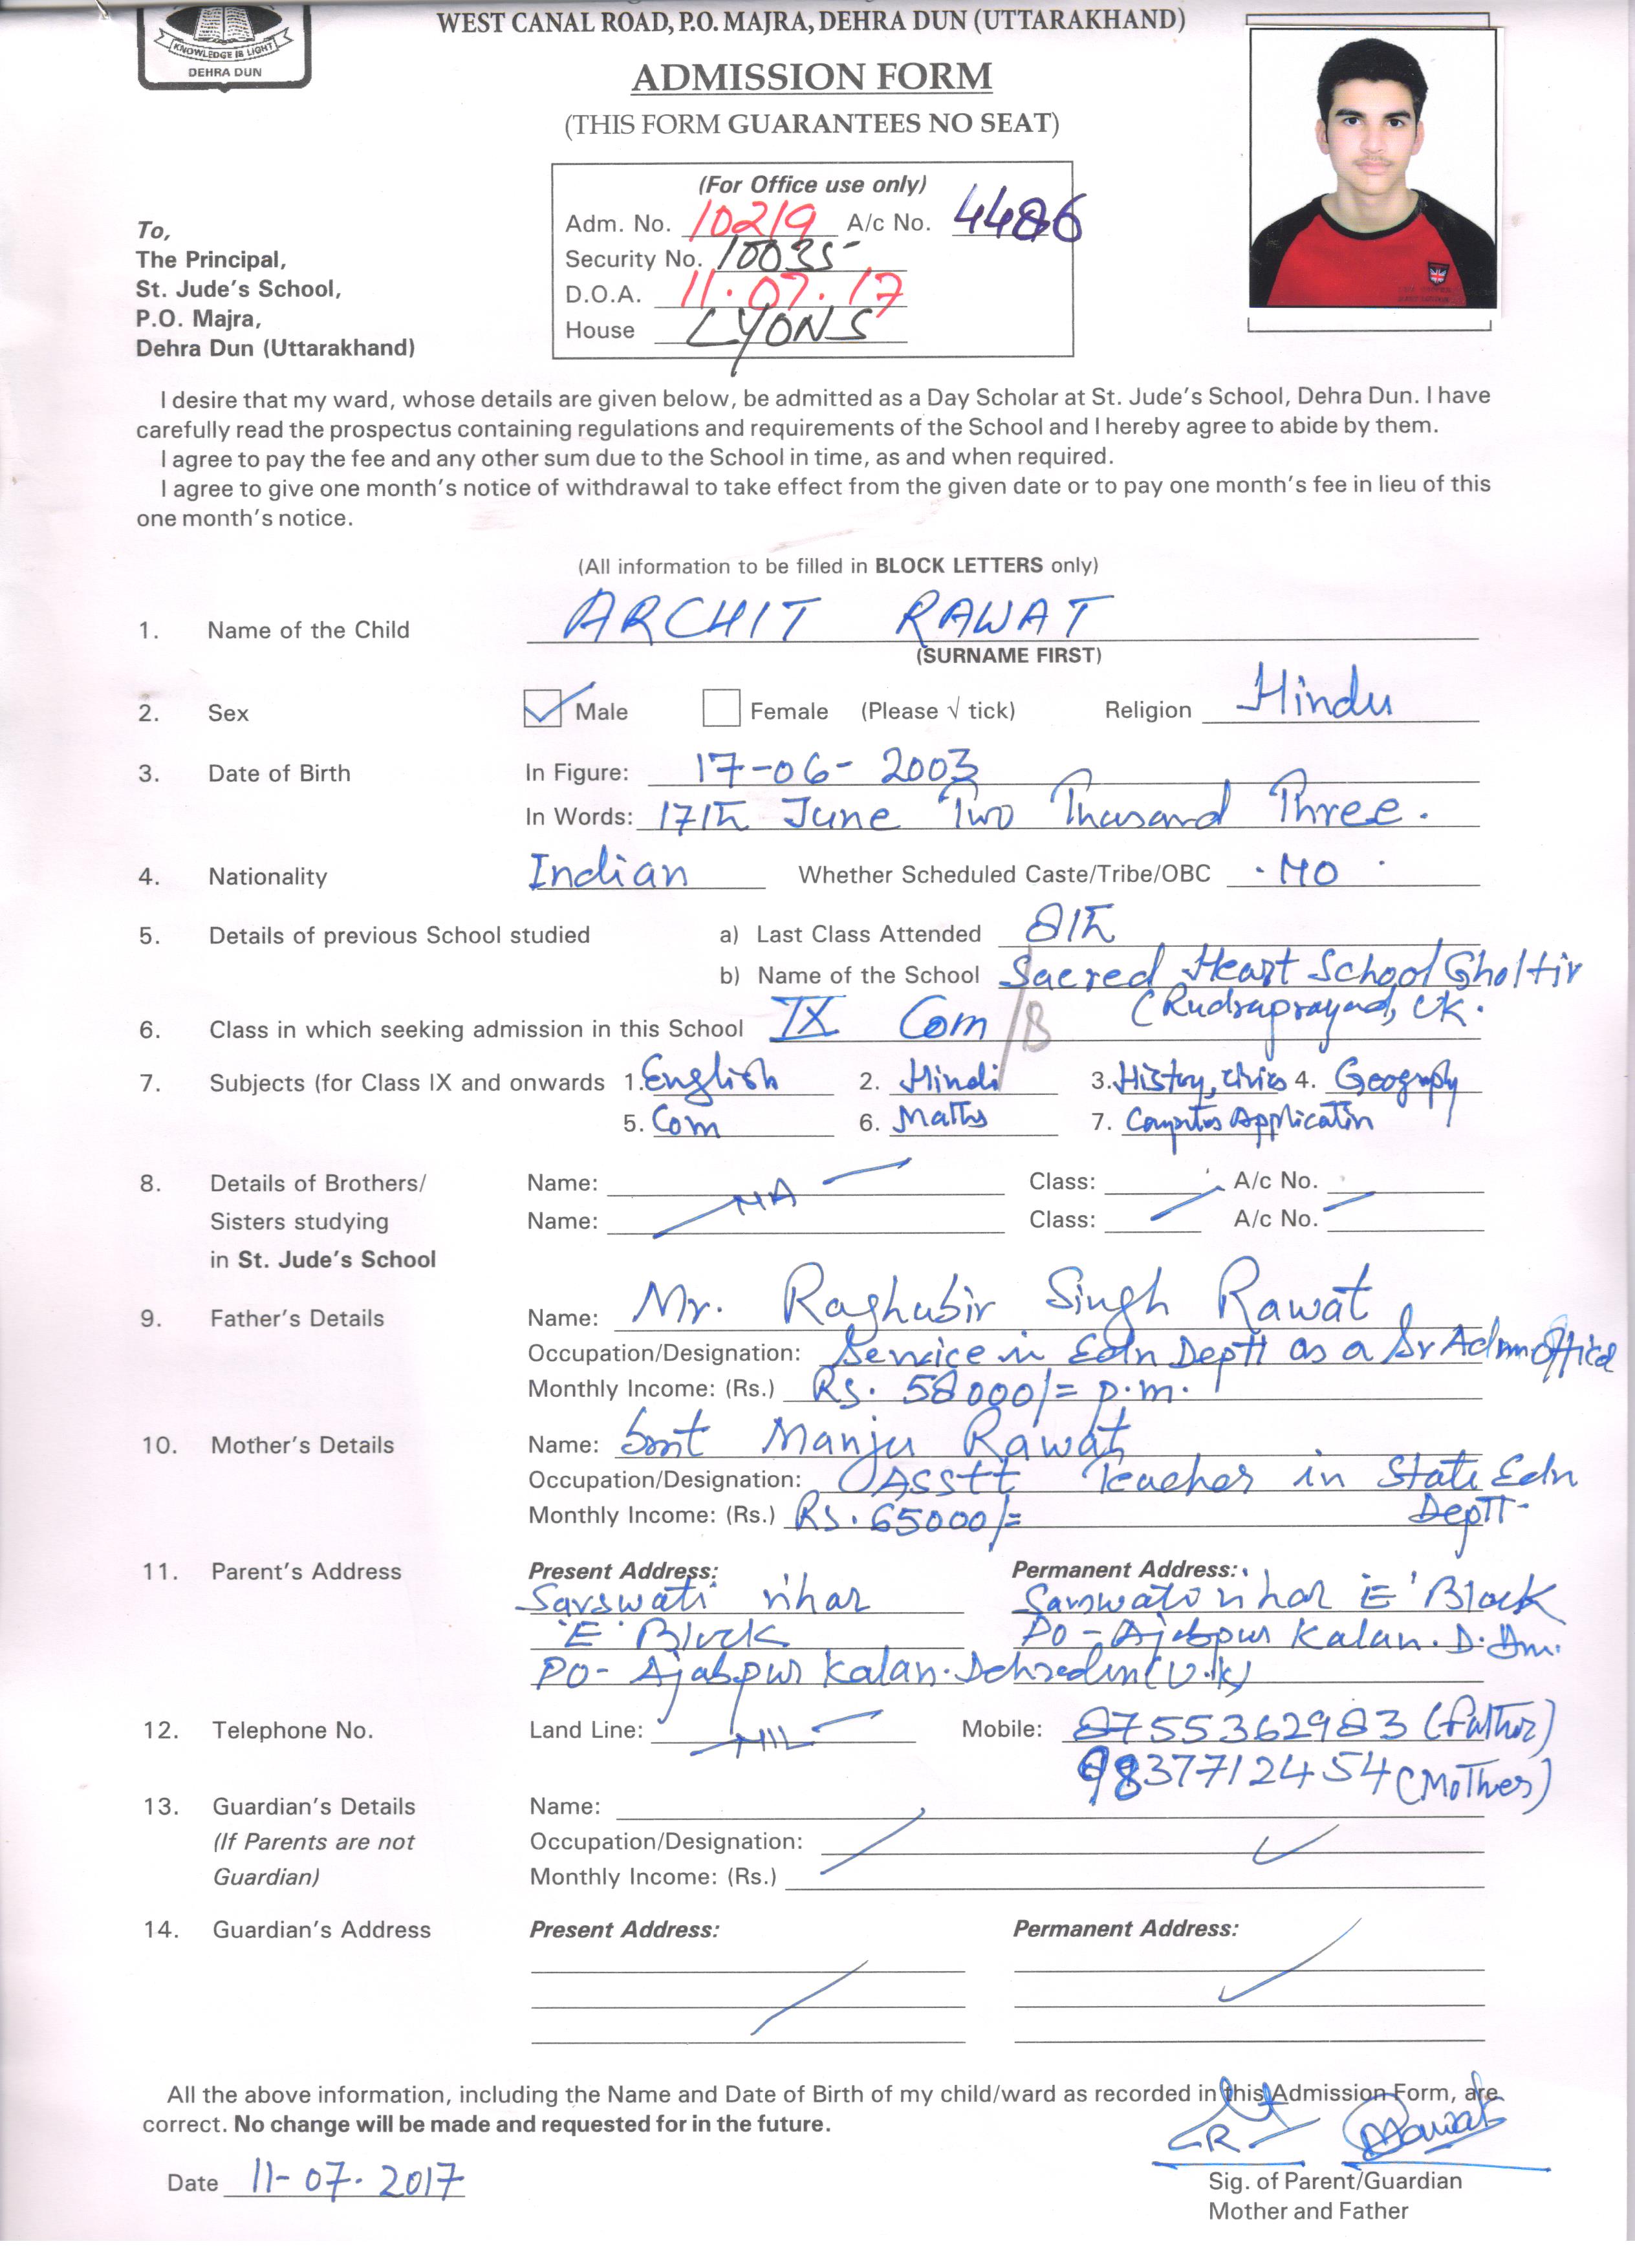 KNOWLEDGE IS LIGHT
DEHRA DUN
WEST CANAL ROAD, P.O. MAJRA, DEHRA DUN (UTTARAKHAND)
ADMISSION FORM
(THIS FORM GUARANTEES NO SEAT)
(For Office use only)
Adm. No. 10219 A/c No. 4486
Security No. 10035
D.O.A. 11.07.17
House LYONS
To,
The Principal,
St. Jude's School,
P.O. Majra,
Dehra Dun (Uttarakhand)
I desire that my ward, whose details are given below, be admitted as a Day Scholar at St. Jude's School, Dehra Dun. I have
carefully read the prospectus containing regulations and requirements of the School and I hereby agree to abide by them.
I agree to pay the fee and any other sum due to the School in time, as and when required.
I agree to give one month's notice of withdrawal to take effect from the given date or to pay one month's fee in lieu of this
one month's notice.
(All information to be filled in BLOCK LETTERS only)
1. Name of the Child ARCHIT RAWAT
(SURNAME FIRST)
2. Sex Male Female (Please √ tick) Religion Hindu
3. Date of Birth In Figure: 17-06-2003
In Words: 17th June Two Thusand Three.
4. Nationality Indian Whether Scheduled Caste/Tribe/OBC NO
5. Details of previous School studied a) Last Class Attended 8th
b) Name of the School Sacred Heart School Gholtir
(Rudraprayad, UK.
6. Class in which seeking admission in this School IX Com /B
7. Subjects (for Class IX and onwards 1. English 2. Hindi 3. History, civics 4. Geography
5. Com 6. Maths 7. Computer Application
8. Details of Brothers/ Name: NA Class: A/c No.
Sisters studying Name: Class: A/c No.
in St. Jude's School
9. Father's Details Name: Mr. Raghubir Singh Rawat
Occupation/Designation: Service in Edn Deptt as a Sr Admn Officer
Monthly Income: (Rs.) Rs. 58000/= p.m.
10. Mother's Details Name: Smt Manju Rawat
Occupation/Designation: Asstt Teacher in State Edn
Deptt-
Monthly Income: (Rs.) Rs. 65000/=
11. Parent's Address Present Address: Permanent Address:
Sarswati vihar Sarswati vihar 'E' Block
'E' Block PO - Ajabpur Kalan. D. Dun.
PO- Ajabpur Kalan. Dehradun (U.K)
12. Telephone No. Land Line: NIL Mobile: 8755362983 (Father)
9837712454 (Mother)
13. Guardian's Details Name:
(If Parents are not Occupation/Designation:
Guardian) Monthly Income: (Rs.)
14. Guardian's Address Present Address: Permanent Address:
All the above information, including the Name and Date of Birth of my child/ward as recorded in this Admission Form, are
correct. No change will be made and requested for in the future.
Date 11-07-2017
Sig. of Parent/Guardian
Mother and Father